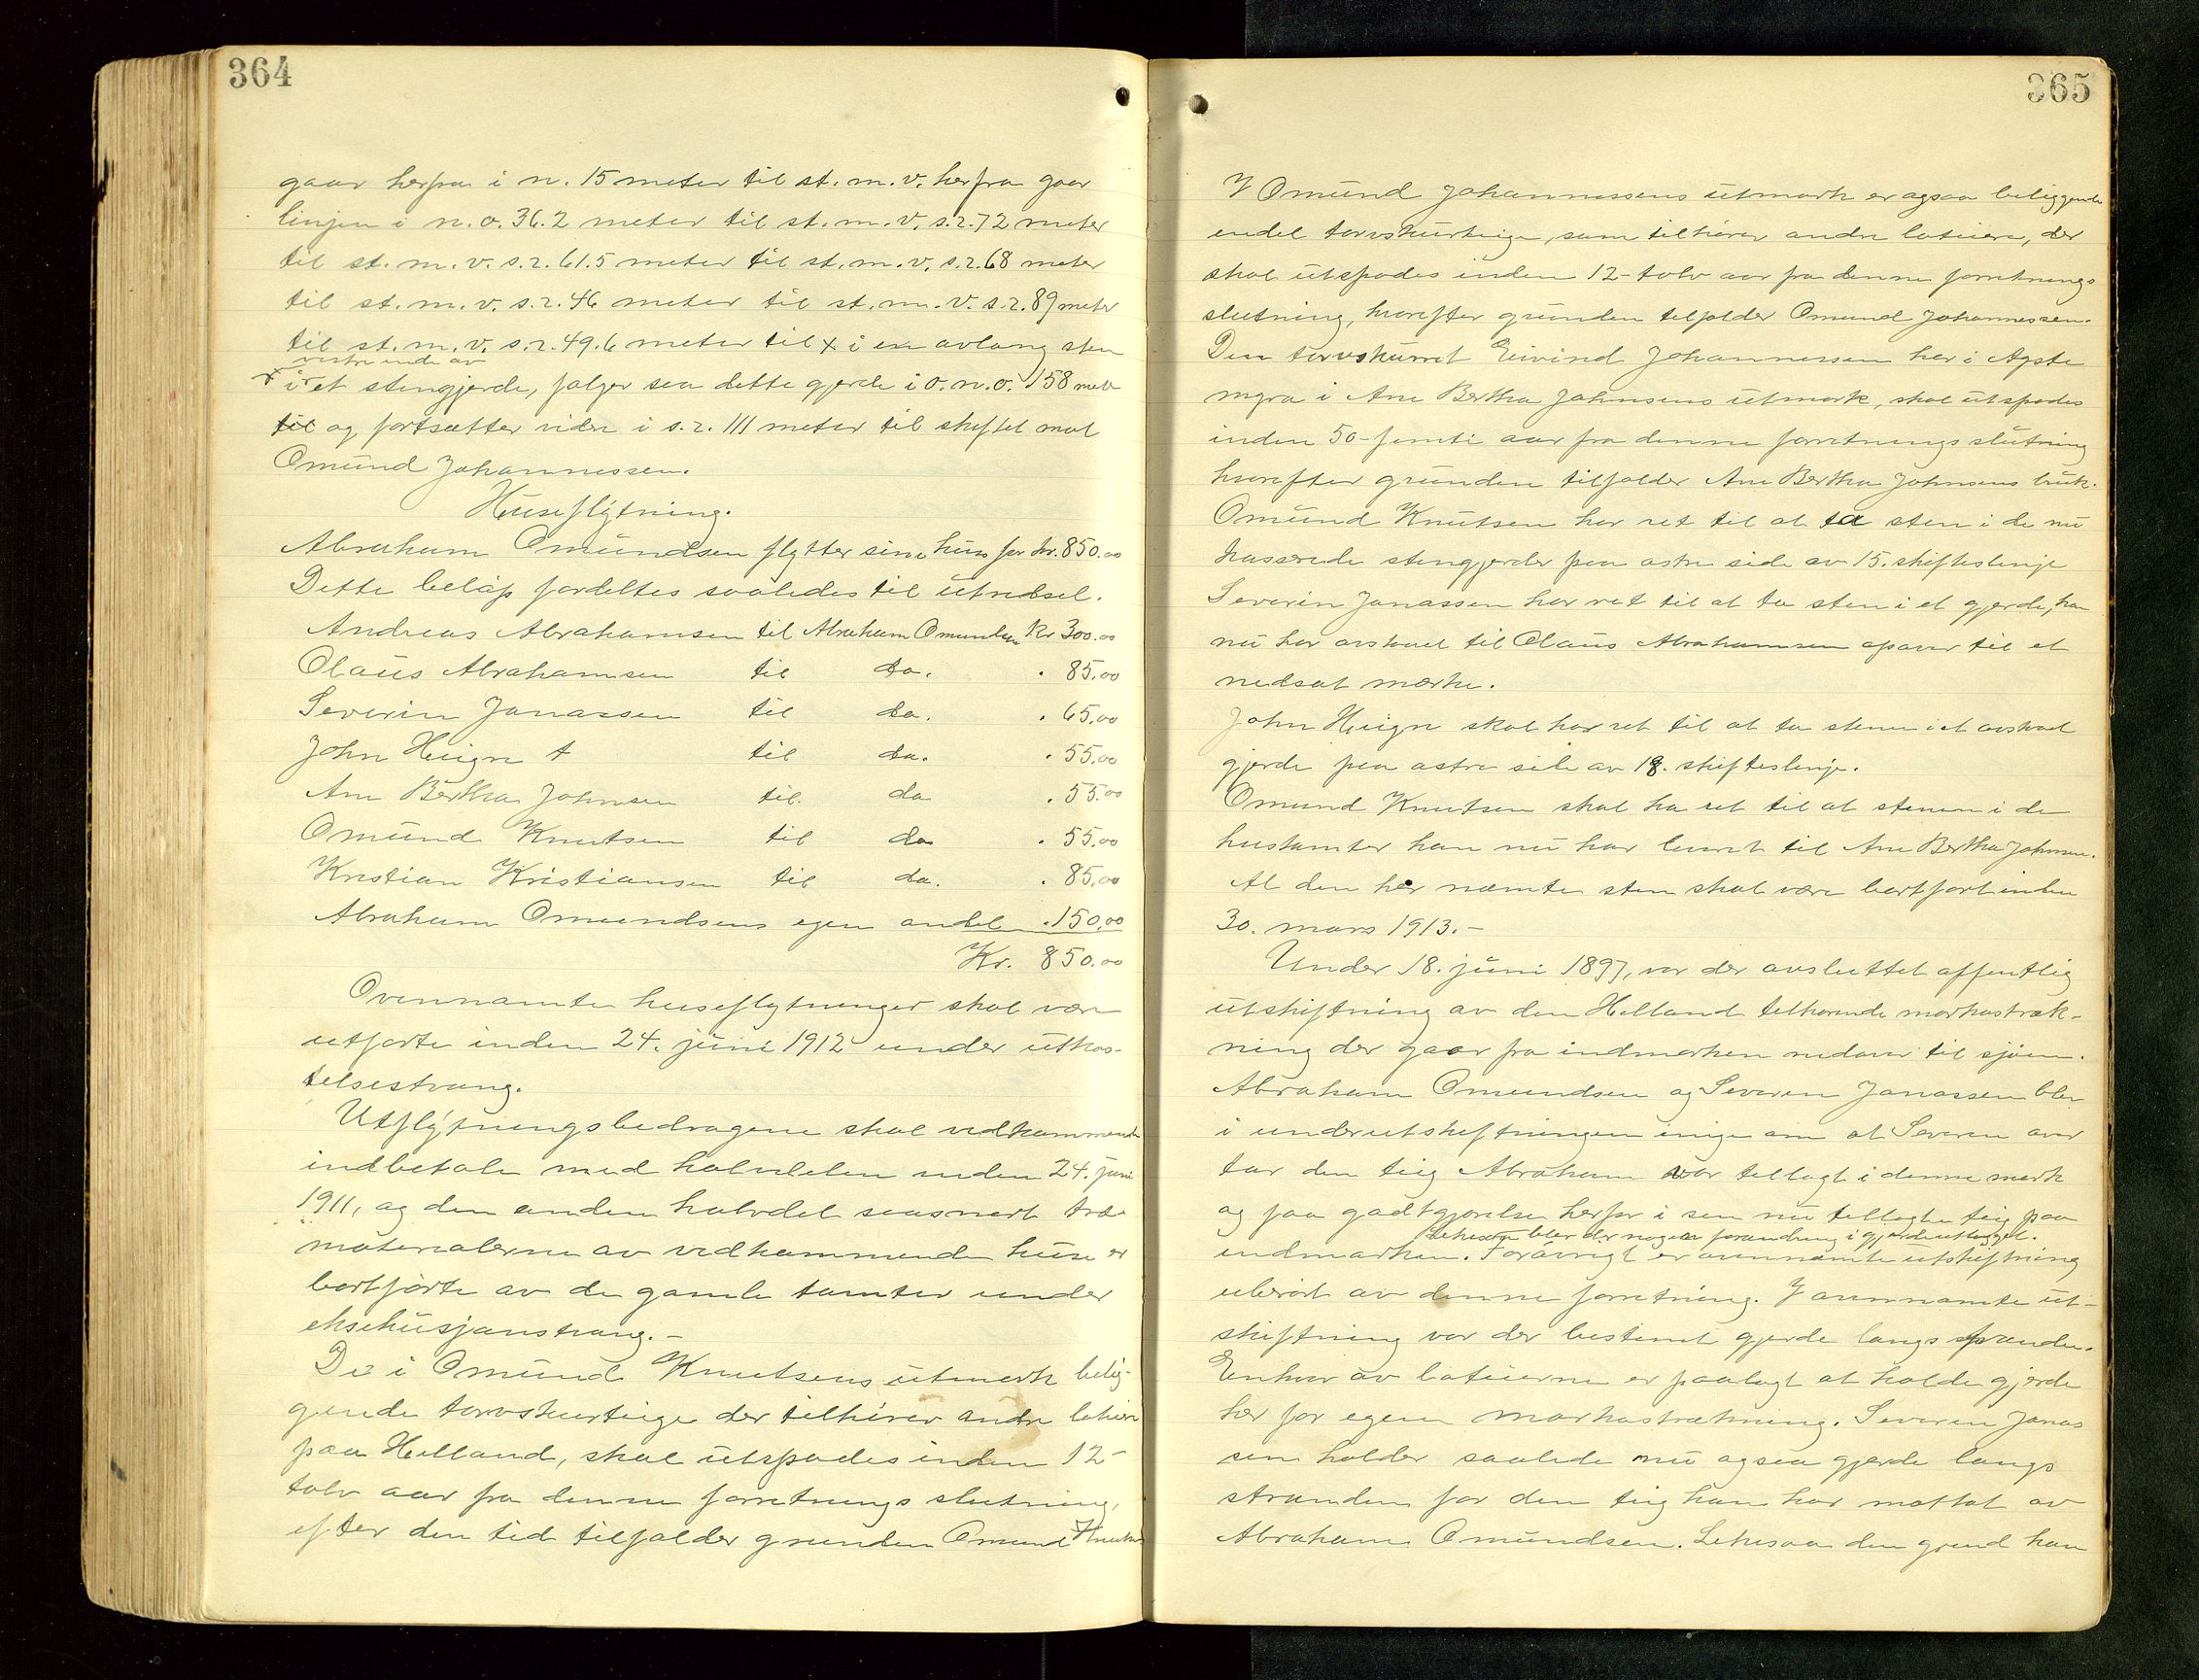 364
gaar herfra i n. 15 meter til st. m. v. herfra gaar
linjen i n. o. 36.2 meter til st. m. v. s. r. 72 meter
til st. m. v. s. r. 61.5 meter til st. m. v. s. r. 68 meter
til st. m. v. s. r. 46 meter til st. m. v. s. r. 89 meter
til st. m. v. s. r. 49.6 meter til x i en avlang sten
vestre ende av
i et stengjerde, følger saa dette gjerde i o. n. o. 158 meter
til og fortsætter videre i s. r. 111 meter til skiftet mot
Omund Johannessen.
Huseflytning.
Abraham Omundsen flytter sine hus for kr. 850.00
Dette beløp fordeltes saaledes til utredsel.
Andreas Abrahamsen til Abraham Omundsen Kr 300.00
Olaus Abrahamsen til do. . 85.00
Severin Jonassen til do. . 65.00
John Heigre t til do. . 55.00
Ane Bertha Johnsen til do . 55.00
Omund Knutsen til do . 55.00
Kristian Kristiansen til do. . 85.00
Abraham Omundsens egen andel . 150.00
Kr. 850.00
Ovennævnte huseflytninger skal være
utførte inden 24. juni 1912 under utkas-
telsestvang.
Utflytningsbedragene skal vedkommende
indbetale med halvdelen inden 24. juni
1911, og den anden halvdel saasnart træ-
materialerne av vedkommende huse er
bortførte av de gamle tomter under
eksekusjonstvang. -
De i Omund Knutsens utmark belig-
gende torvskurteige der tilhører andre loteiere
paa Helland, skal utspades inden 12-
tolv aar fra denne forretnings slutning,
efter den tid tilfalder grunden Omund Knutsen
365
I Omund Johannessens utmark er ogsaa beliggende
endel torvskurteige, som tilhører andre loteiere, der
skal utspades inden 12-tolv aar fra denne forretnings
slutning, hvorefter grunden tilfalder Omund Johannessen.
Den torvskurret Eivind Johannessen har i Agste
myra i Ane Bertha Johnsens utmark, skal utspades
inden 50-femti aar fra denne forretnings slutning
hvorefter grunden tilfalder Ane Bertha Johnsens bruk.
Omund Knutsen har ret til at ta sten i de nu
kasserede stengjerder paa østre side av 15. skifteslinje
Severin Jonassen har ret til at ta sten i et gjerde, han
nu har avstaaet til Olaus Abrahamsen opover til et
nedsat mærke.
John Heigre skal har ret til at ta stenen i et avstaaet
gjerde paa østre side av 18. skifteslinje.
Omund Knutsen skal ha ret til at stenen i de
hustomter han nu har levert til Ane Bertha Johnsen.
Al den her nævnte sten skal være bortført inden
30. mars 1913. -
Under 18. juni 1897, var der avsluttet offentlig
utskiftning av den Helland tilhørende markastræk-
ning der gaar fra indmarken nedover til sjøen.
Abraham Omundsen og Severin Jonassen blev
i underutskiftningen enige om at Severin over
tar den teig Abraham var tillagt i denne mark
og faa godtgjørelse herfor i sin nu tillagte teig paa
Likesom blev der nogen forandring i gjerdeutlegget.
indmarken. Forøvrigt er ovennævnte utskiftning
uberørt av denne forretning. I ovennævnte ut-
skiftning var der bestemt gjerde langs stranden.
Enhver av loteierne er paalagt at holde gjerde
her for egen markastrækning. Severin Jonas
sen holder saalede nu ogsaa gjerde langs
stranden for den teig han har mottat av
Abraham Omundsen. Likesaa den grund han